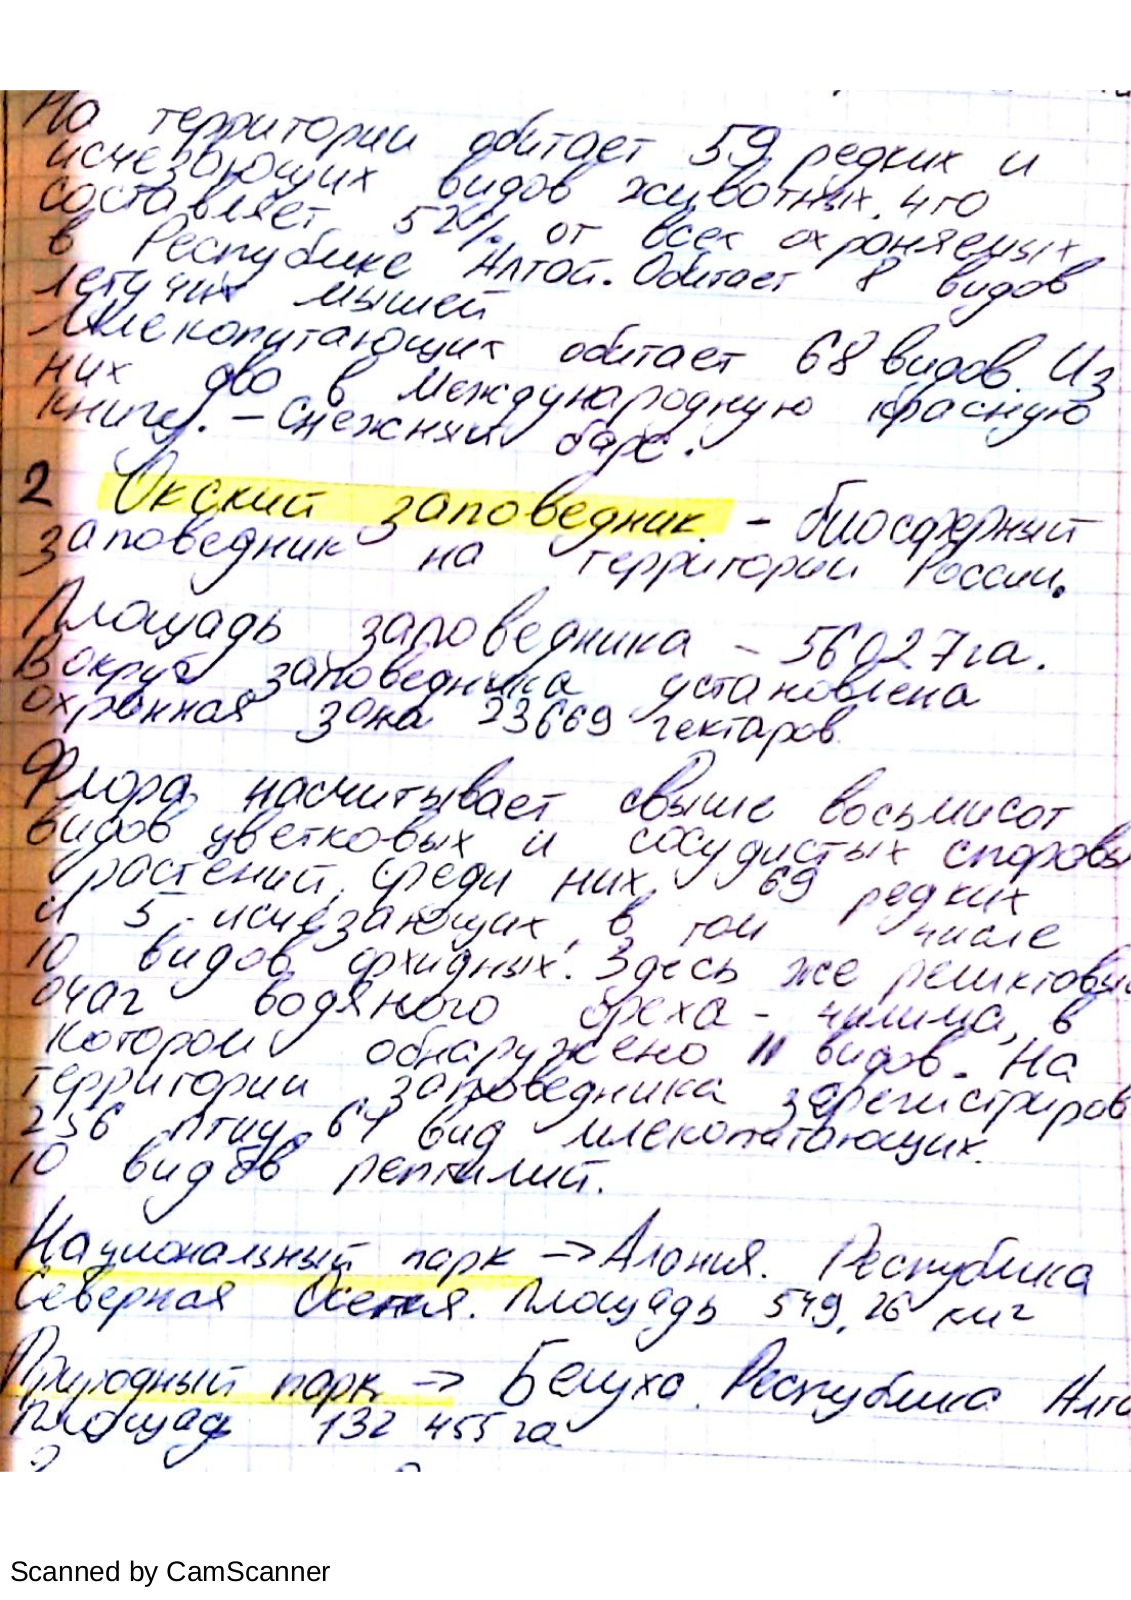 На территории обитает 59 редких и
исчезающих видов животных, что
составляет 52% от всех охраняемых
в Республике Алтай. Обитает 8 видов
летучих мышей
Млекопитающих обитает 68 видов. Из
них два в Международную красную
книгу. – Снежный барс.
2 Окский заповедник. – биосферный
заповедник на территории России.
Площадь заповедника – 56027га.
Вокруг заповедника установлена
охранная зона 23669 гектаров
Флора насчитывает свыше восьмисот
видов цветковых и сосудистых споровы
растений, среди них 69 редких
и 5 - исчезающих, в том числе
10 видов орхидных. Здесь же реликтовый
очаг водяного ореха - чилима, в
котором обнаружено 11 видов. На
территории заповедника зарегистриров
256 птиц, 61 вид млекопитающих.
10 видов рептилий.
Национальный парк -> Алания. Республика
Северная Осетия. Площадь 549,26 км2
Природный парк -> Белуха. Республика Алта
площадь 132 455 га
Scanned by CamScanner